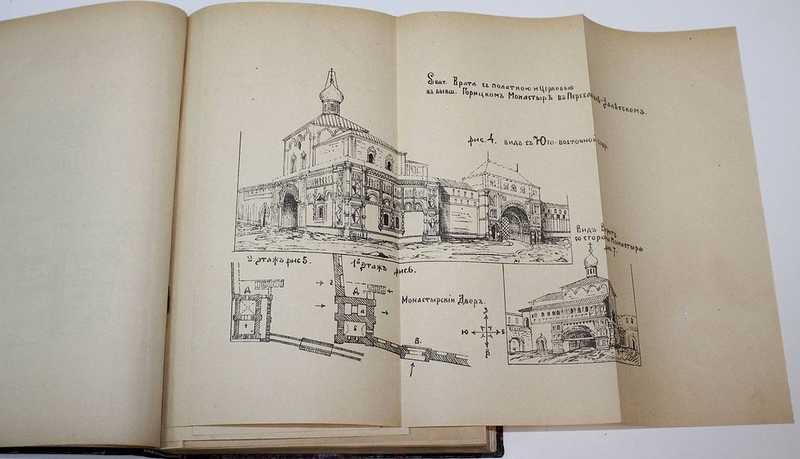 Врата съ полатною и Церковью
въ бывш. Горицкомъ Монастырѣ въ Переславлѣ-Залѣсскомъ.
рис. 4. видъ съ Юго-восточной стор.
Видъ Вратъ
со стороны Монастыря
2 этажъ рис 5.
1й этажъ рис 6.
Монастырскiй Дворъ.
Д
Д
2
З
Ю
В
В.